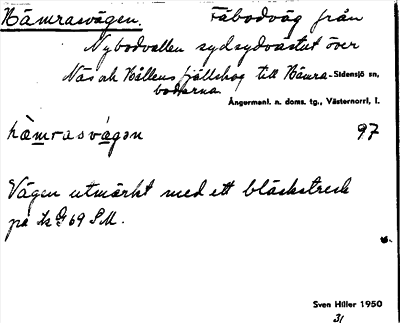 Hämrasvägen. Fäbodväg från
Nybodvallen sydsydvästut över
Näs ok Hållens fjällskog till Hämra- Sidensjö sn,
bodarna
Ångermanl. n. doms. tg., Västernorrl. l.
hämrasvägən 97
Vägen utmärkt med ett bläckstreck
på k 69 SM.
Sven Hiller 1950
31